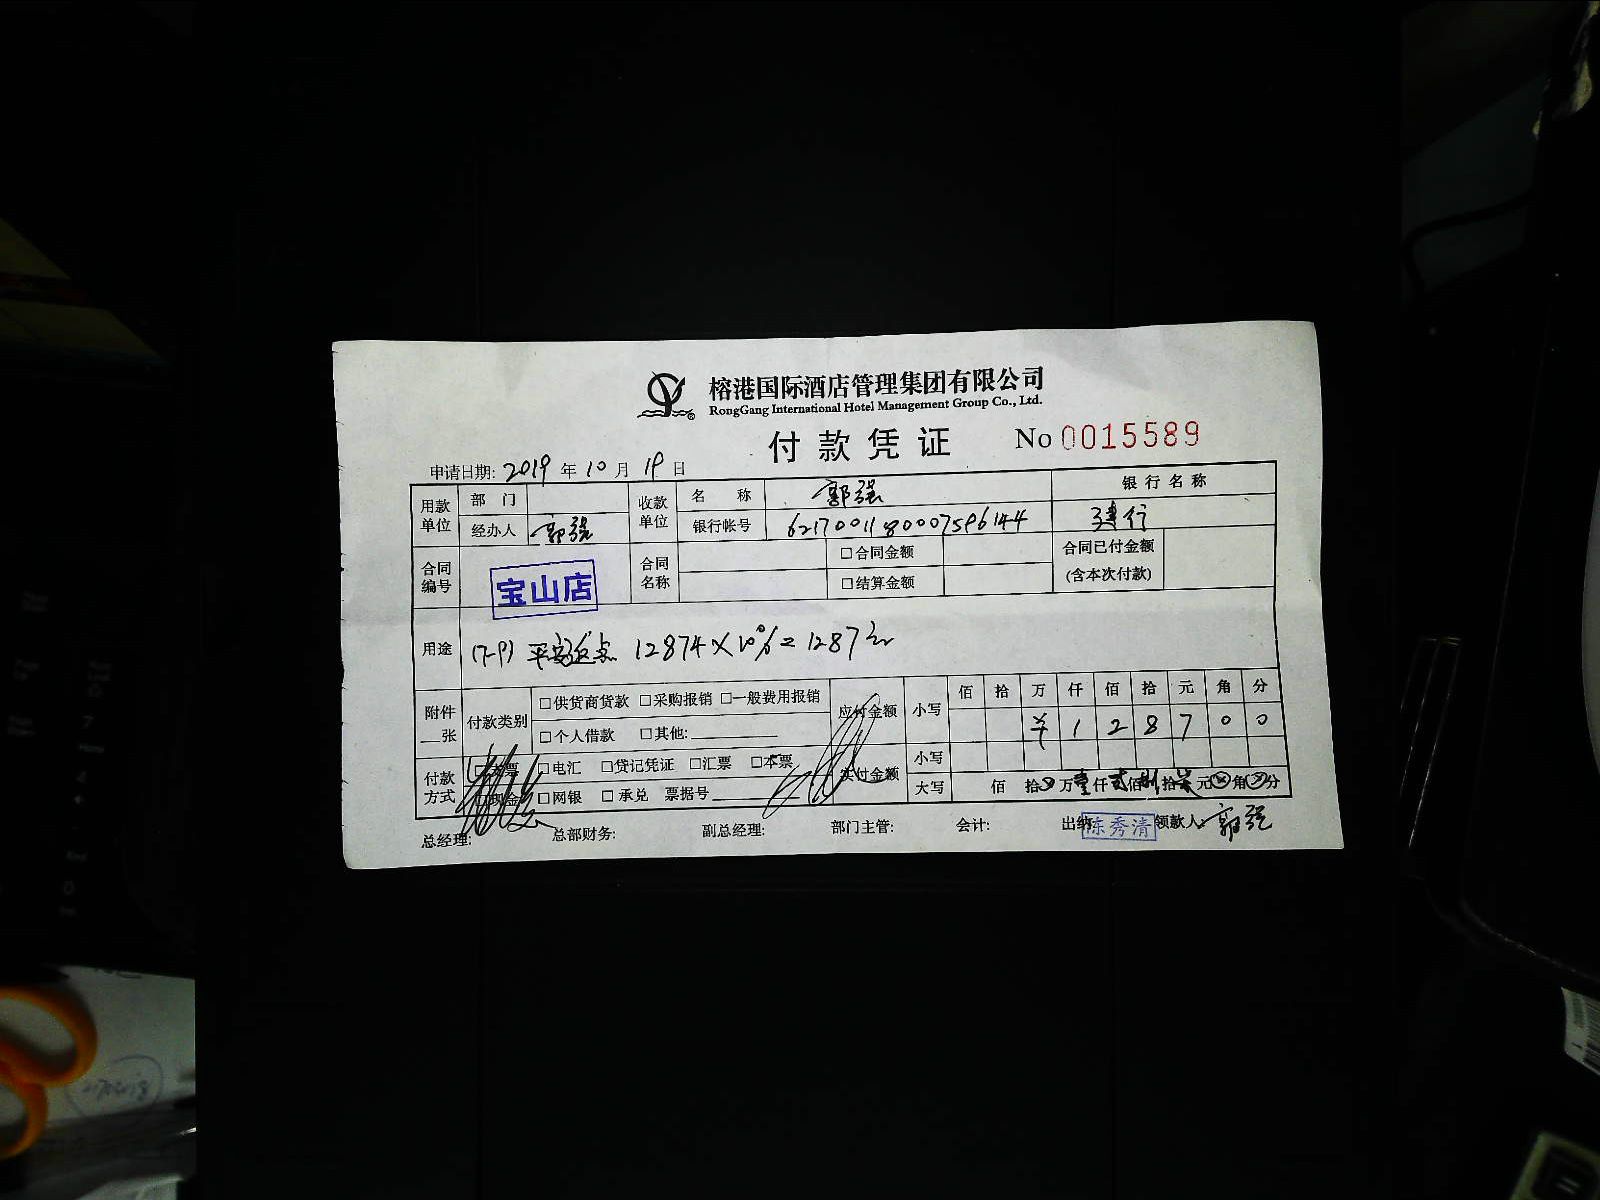 榕港国际酒店管理集团有限公司
RongGang International Hotel Management Group Co., Ltd.
付款凭证 No 0015589
申请日期: 2019 年 10 月 19 日
用款单位 部门 收款单位 名称 郭强 银行名称
经办人 郭强 银行帐号 6217001180007596144 建行
合同编号 宝山店 合同名称 □合同金额 合同已付金额
□结算金额 (含本次付款)
用途 (7-9) 平安返点 12874×10%=1287元
附件 张 付款类别 □供货商货款 □采购报销 □一般费用报销 应付金额 小写 佰 拾 万 仟 佰 拾 元 角 分
□个人借款 □其他: ¥ 1 2 8 7 0 0
付款方式 □支票 □电汇 □贷记凭证 □汇票 □本票 实付金额 小写
□现金 □网银 □承兑 票据号 大写 佰 拾 万壹仟贰佰捌拾柒元 角 分
总经理: 总部财务: 副总经理: 部门主管: 会计: 出纳 陈秀清 领款人: 郭强